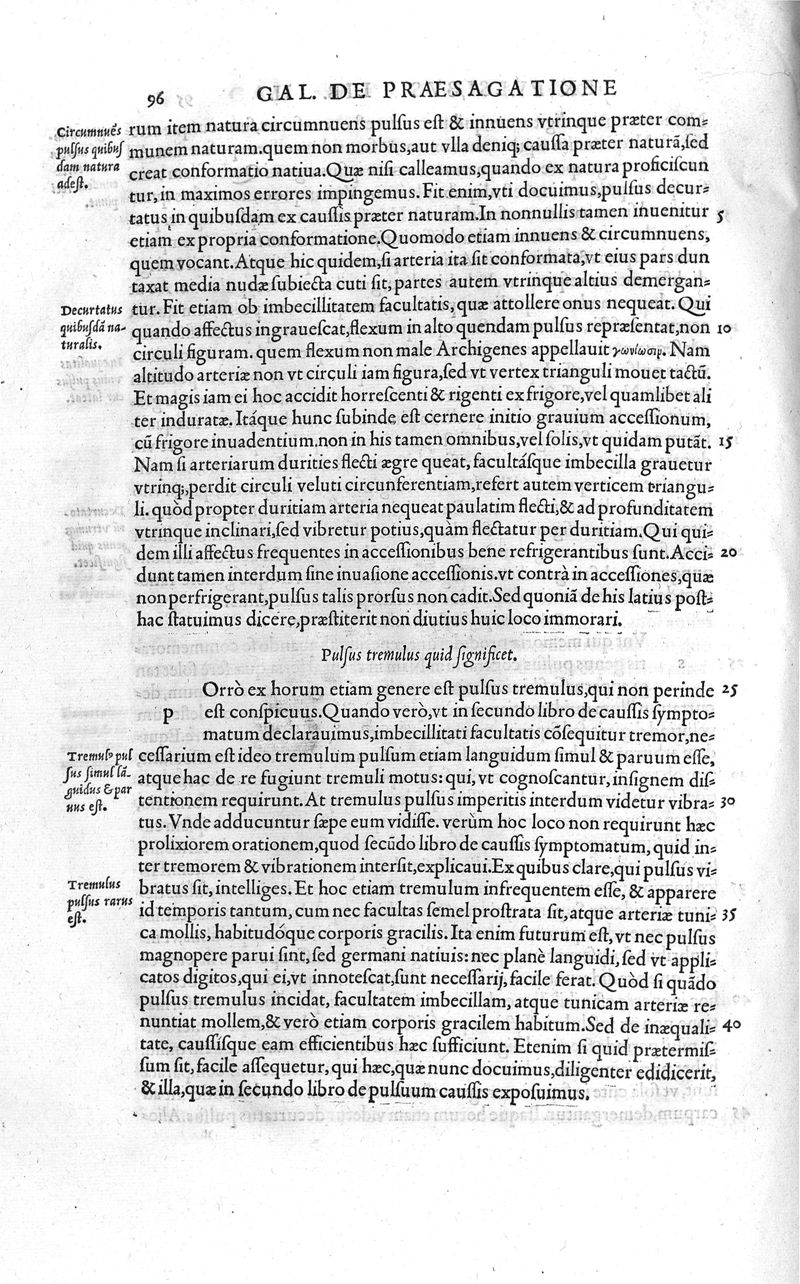 96 GAL. DE PRAESAGATIONE
Circumnuẽs
pulſus quibuſ
dam natura
adeſt.
rum item natura circumnuens pulſus eſt & innuens vtrinque præter com⸗
munem naturam.quem non morbus,aut vlla deniq; cauſſa præter naturã,ſed
creat conformatio natiua.Quæ niſi calleamus,quando ex natura proficiſcun
tur,in maximos errores impingemus.Fit enim,vti docuimus,pulſus decur⸗
tatus in quibuſdam ex cauſſis præter naturam.In nonnullis tamen inuenitur 5
etiam ex propria conformatione.Quomodo etiam innuens & circumnuens,
quem vocant.Atque hic quidem,ſi arteria ita ſit conformata,vt eius pars dun
taxat media nudæ ſubiecta cuti ſit,partes autem vtrinque altius demergan⸗
Decurtatus
quibuſdã na-
turalis.
tur. Fit etiam ob imbecillitatem facultatis,quæ attollere onus nequeat. Qui
quando affectus ingraueſcat,flexum in alto quendam pulſus repræſentat,non 10
circuli figuram. quem flexum non male Archigenes appellauit γωνίωσιμ. Nam
altitudo arteriæ non vt circuli iam figura,ſed vt vertex trianguli mouet tactũ.
Et magis iam ei hoc accidit horreſcenti & rigenti ex frigore,vel quamlibet ali
ter induratæ. Itáque hunc ſubinde eſt cernere initio grauium acceſſionum,
cũ frigore inuadentium.non in his tamen omnibus,vel ſolis,vt quidam putãt. 15
Nam ſi arteriarum durities flecti ægre queat, facultáſque imbecilla grauetur
vtrinq;,perdit circuli veluti circunferentiam,refert autem verticem triangu⸗
li. quòd propter duritiam arteria nequeat paulatim flecti,& ad profunditatem
vtrinque inclinari,ſed vibretur potius,quàm flectatur per duritiam.Qui qui⸗
dem illi affectus frequentes in acceſſionibus bene refrigerantibus ſunt.Acci⸗ 20
dunt tamen interdum ſine inuaſione acceſſionis.vt contrà in acceſſiones,quæ
non perfrigerant,pulſus talis prorſus non cadit.Sed quoniã de his latius poſt⸗
hac ſtatuimus dicere,præſtiterit non diutius huic loco immorari.
Pulſus tremulus quid ſignificet.
p Orrò ex horum etiam genere eſt pulſus tremulus,qui non perinde 25
eſt conſpicuus.Quando verò,vt in ſecundo libro de cauſſis ſympto⸗
matum declarauimus,imbecillitati facultatis cõſequitur tremor,ne⸗
Tremulꝰ pul
ſus ſimul lã-
guidus & par
uus eſt.
ceſſarium eſt ideo tremulum pulſum etiam languidum ſimul & paruum eſſe,
atque hac de re fugiunt tremuli motus: qui, vt cognoſcantur, inſignem diſ⸗
tentionem requirunt. At tremulus pulſus imperitis interdum videtur vibra⸗ 30
tus. Vnde adducuntur ſæpe eum vidiſſe. verùm hoc loco non requirunt hæc
prolixiorem orationem,quod ſecũdo libro de cauſſis ſymptomatum, quid in⸗
ter tremorem & vibrationem interſit,explicaui.Ex quibus clare,qui pulſus vi⸗
Tremulus
pulſus rarus
eſt.
bratus ſit, intelliges. Et hoc etiam tremulum infrequentem eſſe, & apparere
id temporis tantum, cum nec facultas ſemel proſtrata ſit,atque arteriæ tuni⸗ 35
ca mollis, habitudóque corporis gracilis. Ita enim futurum eſt, vt nec pulſus
magnopere parui ſint,ſed germani natiuis: nec planè languidi, ſed vt appli⸗
catos digitos,qui ei,vt innoteſcat,ſunt neceſſarij, facile ferat. Quòd ſi quãdo
pulſus tremulus incidat, facultatem imbecillam, atque tunicam arteriæ re⸗
nuntiat mollem,& verò etiam corporis gracilem habitum.Sed de inæquali⸗ 40
tate, cauſſiſque eam efficientibus hæc ſufficiunt. Etenim ſi quid prætermiſ⸗
ſum ſit, facile aſſequetur, qui hæc,quæ nunc docuimus,diligenter edidicerit,
& illa,quæ in ſecundo libro de pulſuum cauſſis expoſuimus.